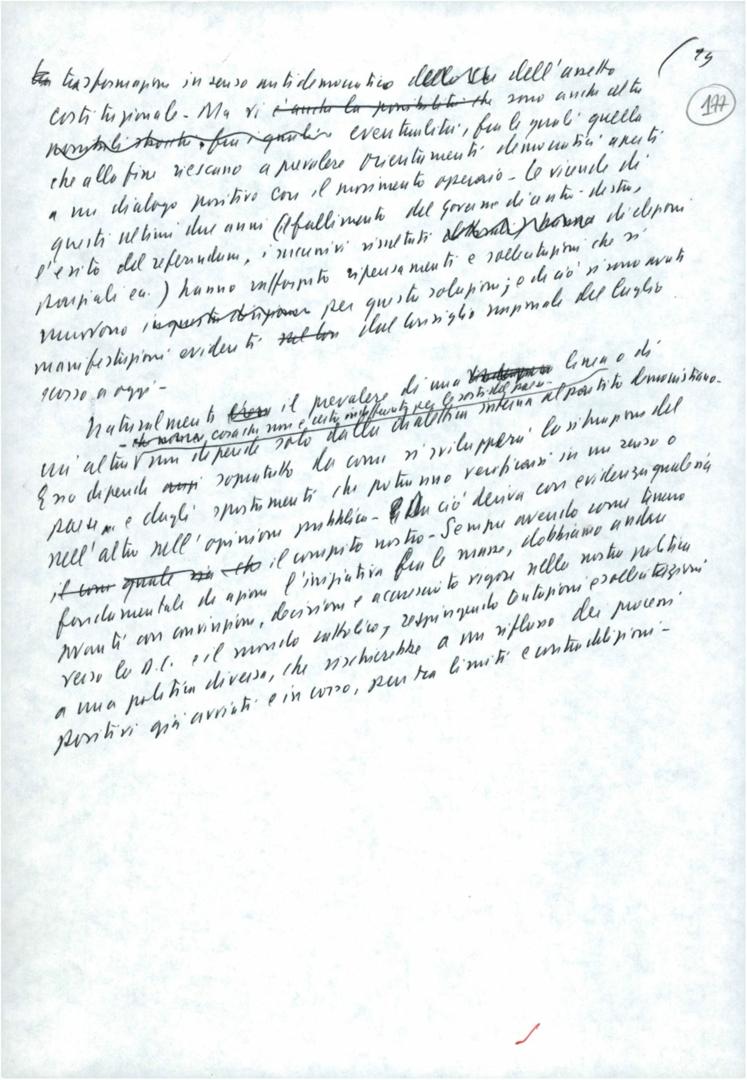 19
177
trasformazione in senso antidemocratico dell'assetto
costituzionale - Ma vi è anche la possibilità che sono anche altre
eventualità, fra le quali quella
che alla fine riescano a prevalere orientamenti democratici aperti
a un dialogo positivo con il movimento operaio - Le vicende di
questi ultimi due anni (il fallimento del governo di centro-destra,
l'esito del referendum, i successivi risultati di elezioni
parziali ecc.) hanno rafforzato ripensamenti e sollecitazioni che si
muovono in questa direzione per questa soluzione; e di ciò si sono avuti
manifestazioni evidenti dal Consiglio nazionale del luglio
scorso a oggi -
Naturalmente il prevalere di una linea o di
- cosa che non è certo indifferente per le sorti del paese -
un'altra non dipende solo dalla dialettica interna al partito democristiano.
Essa dipende anzi soprattutto da come si svilupperà la situazione del
paese e dagli spostamenti che potranno verificarsi in un senso o
nell'altro nell'opinione pubblica - Da ciò deriva con evidenza qual sia
quale sia il compito nostro - Sempre avendo come terreno
fondamentale di azione l'iniziativa fra le masse, dobbiamo andare
avanti con convinzione, decisione e accresciuto vigore nella nostra politica
verso la D.C. e il mondo cattolico, respingendo tentazioni e sollecitazioni
a una politica diversa, che rischierebbe a un riflusso dei processi
positivi già avviati e in corso, pur tra limiti e contraddizioni -